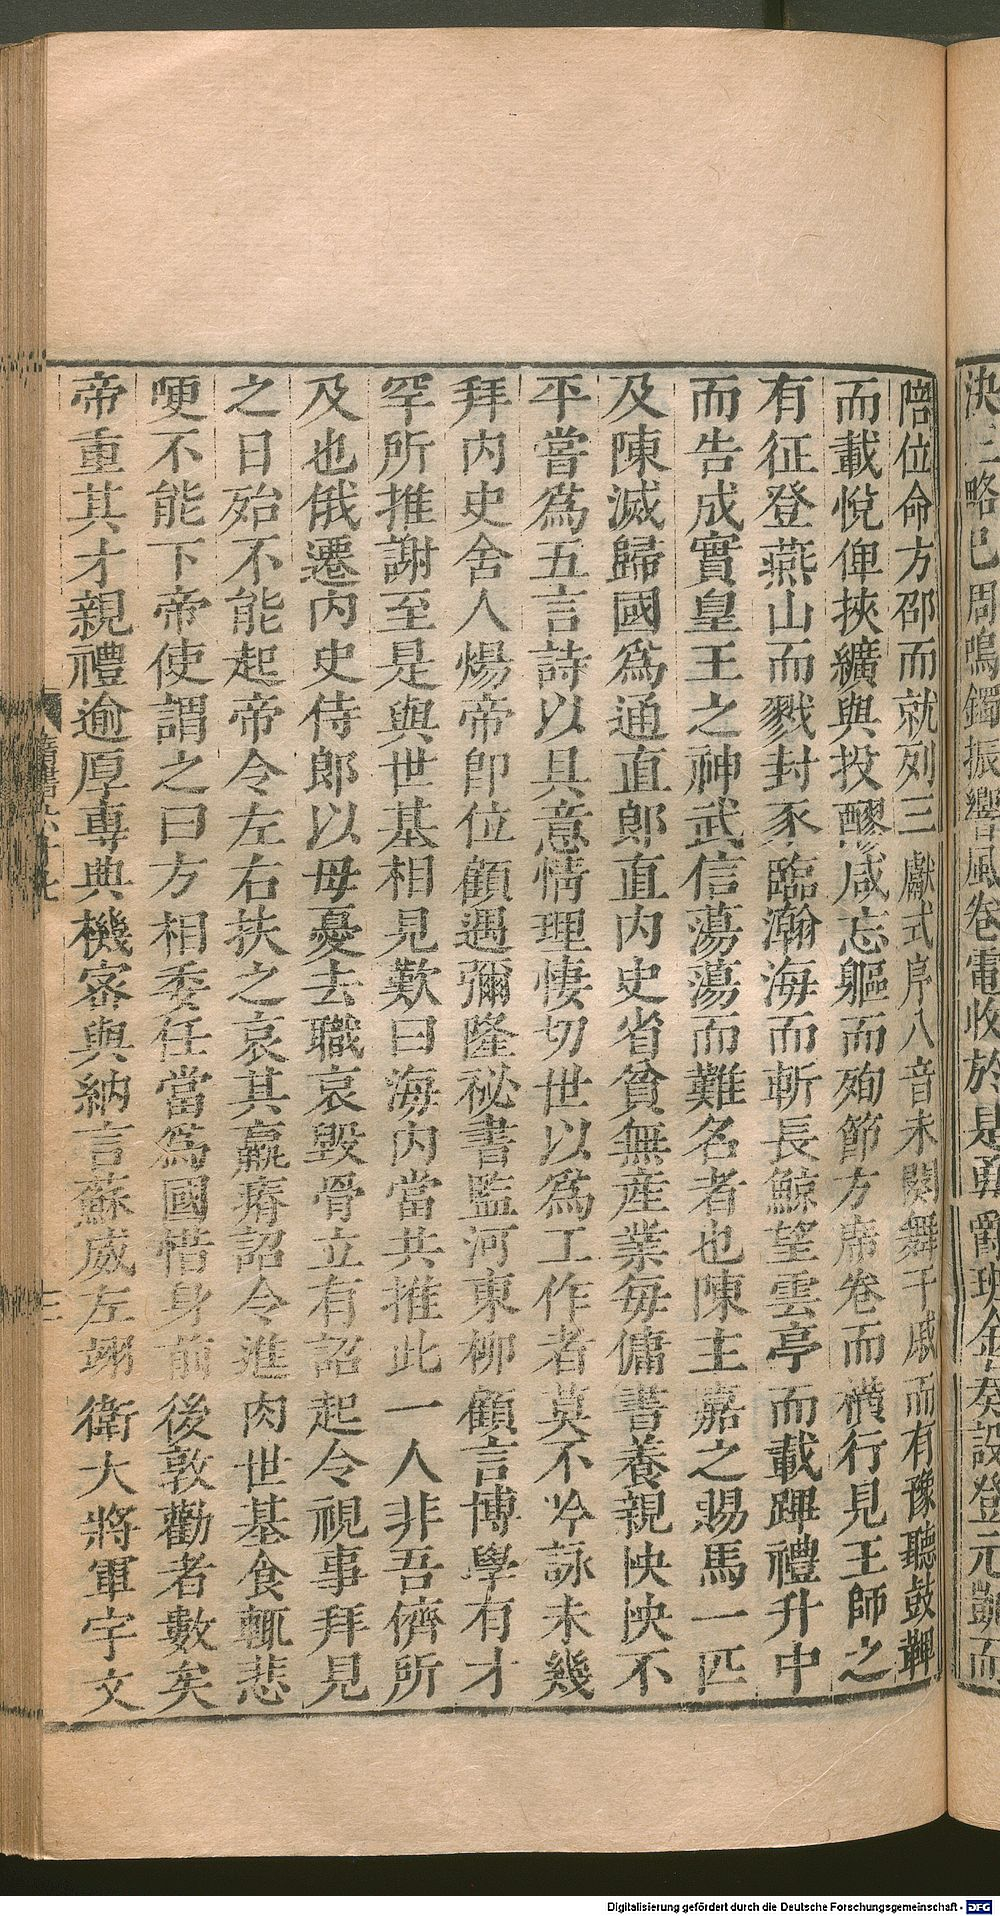 決三略已周鳴鐲振響風卷電收於是勇爵班金奏設登元凱而
陪位命方邵而就列三獻式序八音未闋舞干戚而有豫聽鼓鞞
而載悅俾挾纊與投醪咸忘軀而殉節方席卷而橫行見王師之
有征登燕山而戮封豕臨瀚海而斬長鯨望雲亭而載蹕禮升中
而告成實皇王之神武信蕩蕩而難名者也陳主嘉之賜馬一匹
及陳滅歸國爲通直郎直内史省貧無產業每傭書養親怏怏不
平嘗爲五言詩以見意情理悽切世以爲工作者莫不吟詠未幾
拜内史舍人煬帝即位顧遇彌隆祕書監河東柳顧言博學有才
罕所推謝至是與世基相見歎曰海内當共推此一人非吾儕所
及也俄遷内史侍郎以母憂去職哀毀骨立有詔起令視事拜見
之日殆不能起帝令左右扶之哀其羸瘠詔令進肉世基食輒悲
哽不能下帝使謂之曰方相委任當爲國惜身前後敦勸者數矣
帝重其才親禮逾厚專典機密與納言蘇威左翊衛大將軍宇文
隋書
三
Digitalisierung gefördert durch die Deutsche Forschungsgemeinschaft - DFG